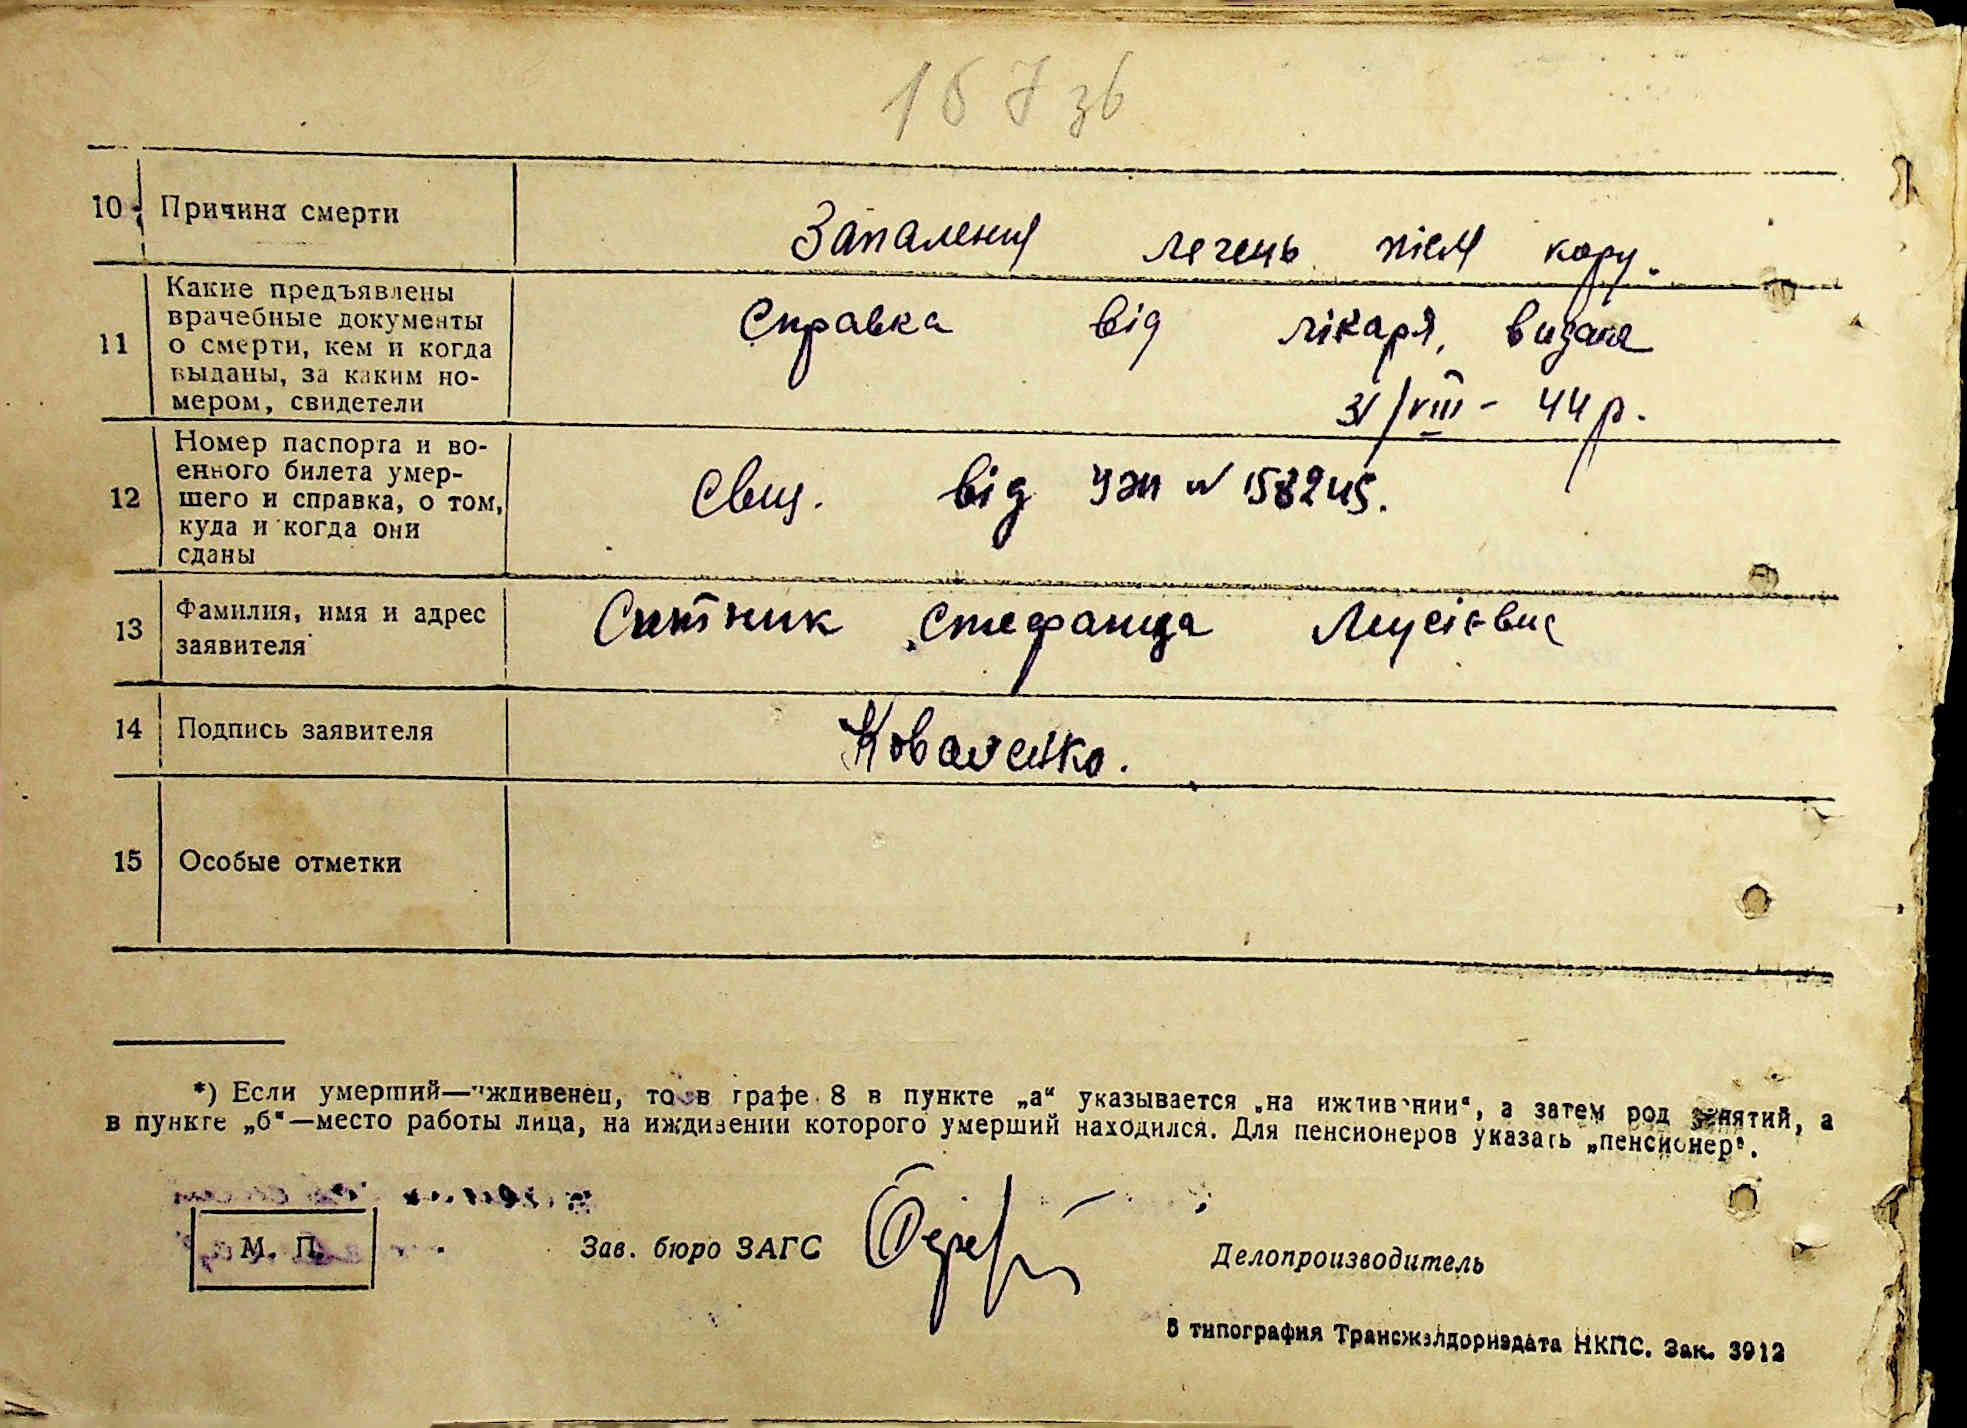 157 зв
10 Причина смерти
Запалення легень після кору.
11 Какие предъявлены врачебные документы о смерти, кем и когда выданы, за каким номером, свидетели
Справка від лікаря, видана
31/VIII - 44 р.
12 Номер паспорта и военного билета умершего и справка, о том, куда и когда они сданы
Свид. від № 158245.
13 Фамилия, имя и адрес заявителя
Ситник Стефанида
14 Подпись заявителя
Коваленко.
15 Особые отметки
*) Если умерший—иждивенец, то в графе 8 в пункте „а“ указывается „на иждивении“, а затем род занятий, а
в пункте „б“—место работы лица, на иждивении которого умерший находился. Для пенсионеров указать „пенсионер“.
М. П.
Зав. бюро ЗАГС
Делопроизводитель
5 типография Трансжелдориздата НКПС. Зак. 3912